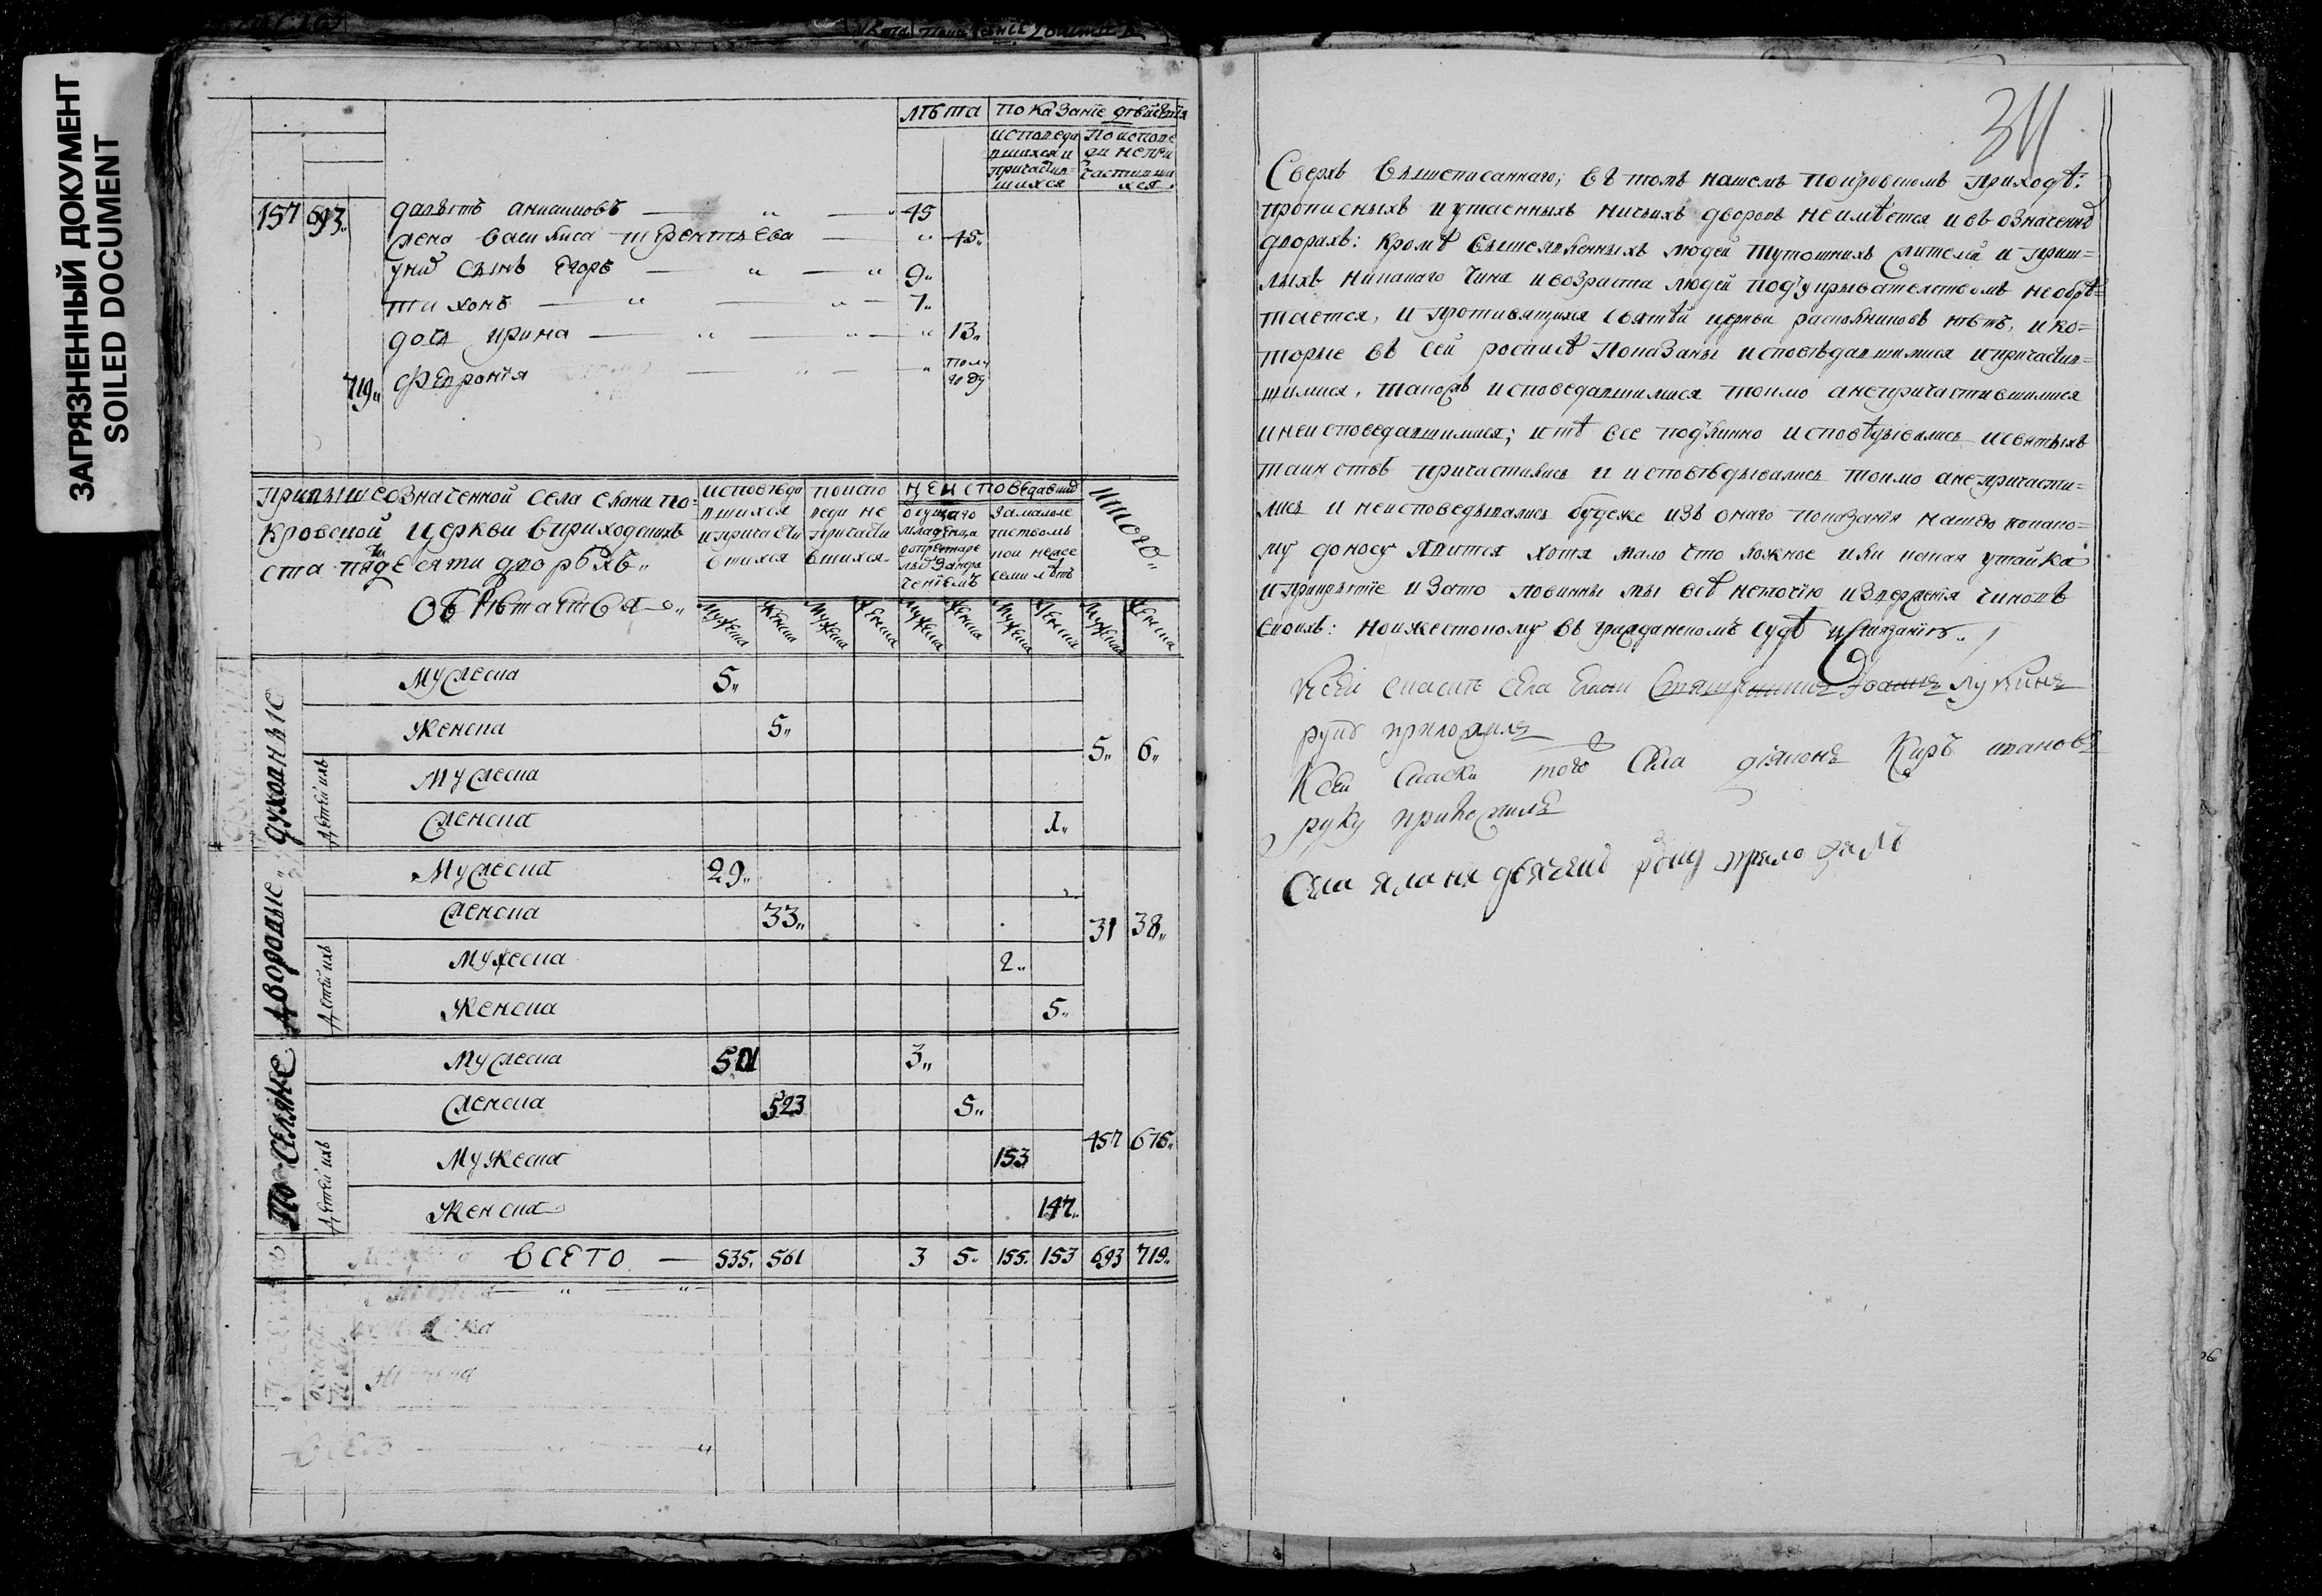 ЗАГРЯЗНЕННЫЙ ДОКУМЕНТ
SOILED DOCUMENT
лѣта показанїе дѣйствїя
исповеда поиспове
вшихся и ди непри
причастив= частивши
шихся хся
157 693„ давыдъ 45
жена василиса терентьева „ 45„
у нихъ сынъ Егоръ „ „ 9„
тихонъ „ „ 7„
дочь ирина „ „ „ 13„
719„ феврониа „ полу году
Привышеозначенной села елани по=
кровской церкви вприходскихъ
ста пядесяти дворѣхъ„
обрѣтаются
исповѣда вшихся ипричасти вшихся
поиспо веди не причасти вшихся
неисповедавши
замалоле тствомъ кои невсе семи лѣтъ
итого„
мужеска женска мужеска женска мужеска женска мужеска женска мужеска женска
духовные
мужеска 5„
женска 5„
5„ 6„
детей ихъ
мужеска
женска 1„
дворовые
мужеска 29„
женска 33„
31 38„
детей ихъ
мужеска 2„
женска 5„
поселяне
мужеска 501 3„
женска 523 5„
457 675„
детей ихъ
мужеска 153
женска 147„
всего 535„ 561 3 5„ 155„ 153 693 719„
34
Сверхъ вышеписаннаго; въ томъ нашемъ покровскомъ приходѣ:
прописныхъ и утаенныхъ ничьихъ дворовъ неимѣется и въ означенныхъ
дворахъ: кромѣ вышеявленныхъ людей тутошнихъ жителей и приш=
лыхъ никакаго чина и возраста людей под укрывателствомъ необрѣ=
тается, и противящихся святѣй церкви расколниковъ нѣтъ, и ко=
торые въ сей росписѣ показаны исповѣдавшимися и причастив=
шимися, такожъ исповедавшимися токмо анепричастившимися
инеисповедавшимися; и тѣ все подлинно исповѣдывались исвятыхъ
таинствъ причастились и исповѣдывались токмо анепричасти=
лись и неисповедывались будеже изъ онаго показанїя нашего покако=
му доносу явится хотя мало что ложное или какая утайка
и прикрытїе и зато повинны мы всѣ неточїю извержения чиновъ
своихъ: ноижестокому въ гражданскомъ судѣ истязанїю„
Ксей села елани священникъ Иоаннъ лукинъ
руку приложилъ
Ксей того села дїяконъ Киръ ивановъ
руку приложилъ
Села руку приложилъ